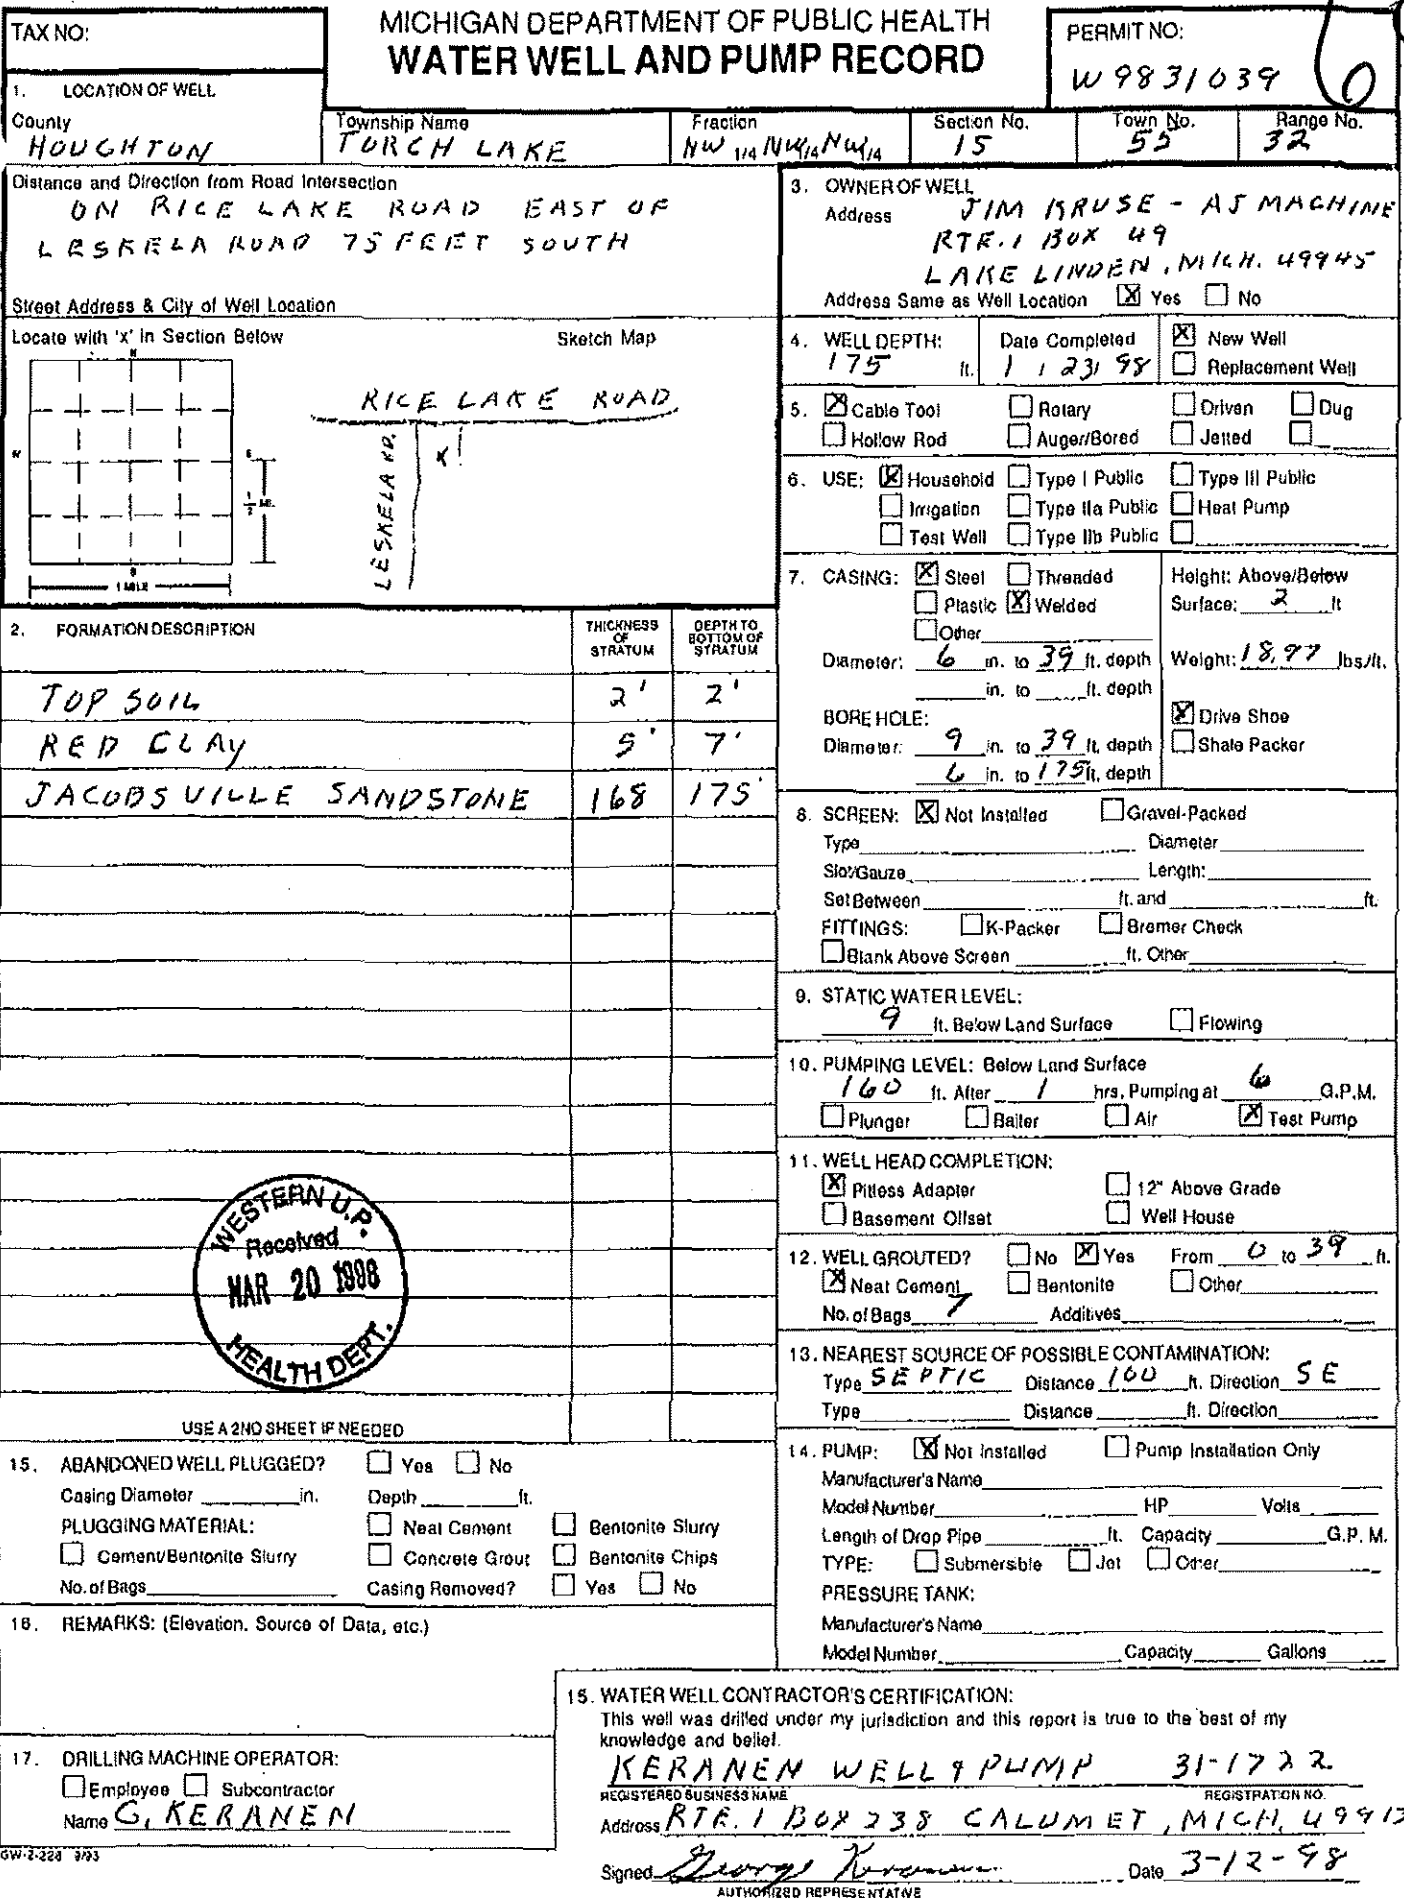 TAX NO:
MICHIGAN DEPARTMENT OF PUBLIC HEALTH
WATER WELL AND PUMP RECORD
PERMIT NO:
W 9831039
6
1. LOCATION OF WELL
County
HOUGHTON
Township Name
TORCH LAKE
Fraction
NW 1/4 NW 1/4 NW 1/4
Section No.
15
Town No.
55
Range No.
32
Distance and Direction from Road Intersection
ON RICE LAKE ROAD EAST OF
LESKELA ROAD 75 FEET SOUTH
Street Address & City of Well Location
Locate with 'x' in Section Below
Sketch Map
N
W
E
S
1/2 MI.
1 MILE
RICE LAKE ROAD
LESKELA RD.
X
2. FORMATION DESCRIPTION
THICKNESS OF STRATUM
DEPTH TO BOTTOM OF STRATUM
TOP SOIL 2' 2'
RED CLAY 5' 7'
JACOBSVILLE SANDSTONE 168 175'
WESTERN U.P.
Received
MAR 20 1998
HEALTH DEPT.
USE A 2ND SHEET IF NEEDED
3. OWNER OF WELL
Address JIM KRUSE - AJ MACHINE
RTE. 1 BOX 49
LAKE LINDEN, MICH. 49945
Address Same as Well Location X Yes No
4. WELL DEPTH:
175 ft.
Date Completed
1, 23, 98
X New Well
Replacement Well
5. X Cable Tool Rotary Driven Dug
Hollow Rod Auger/Bored Jetted
6. USE: X Household Type I Public Type III Public
Irrigation Type IIa Public Heat Pump
Test Well Type IIb Public
7. CASING: X Steel Threaded
Plastic X Welded
Other
Diameter: 6 in. to 39 ft. depth
in. to ft. depth
BORE HOLE:
Diameter: 9 in. to 39 ft. depth
6 in. to 175 ft. depth
Height: Above/Below
Surface: 2 ft
Weight: 18.97 lbs/ft.
X Drive Shoe
Shale Packer
8. SCREEN: X Not Installed Gravel-Packed
Type Diameter
Slot/Gauze Length:
Set Between ft. and ft.
FITTINGS: K-Packer Bremer Check
Blank Above Screen ft. Other
9. STATIC WATER LEVEL:
9 ft. Below Land Surface Flowing
10. PUMPING LEVEL: Below Land Surface
160 ft. After 1 hrs. Pumping at 6 G.P.M.
Plunger Bailer Air X Test Pump
11. WELL HEAD COMPLETION:
X Pitless Adapter 12" Above Grade
Basement Offset Well House
12. WELL GROUTED? No X Yes From 0 to 39 ft.
X Neat Cement Bentonite Other
No. of Bags 7 Additives
13. NEAREST SOURCE OF POSSIBLE CONTAMINATION:
Type SEPTIC Distance 100 ft. Direction SE
Type Distance ft. Direction
14. PUMP: X Not Installed Pump Installation Only
Manufacturer's Name
Model Number HP Volts
Length of Drop Pipe ft. Capacity G.P.M.
TYPE: Submersible Jet Other
PRESSURE TANK:
Manufacturer's Name
Model Number Capacity Gallons
15. ABANDONED WELL PLUGGED? Yes No
Casing Diameter in. Depth ft.
PLUGGING MATERIAL: Neat Cement Bentonite Slurry
Cement/Bentonite Slurry Concrete Grout Bentonite Chips
No. of Bags Casing Removed? Yes No
16. REMARKS: (Elevation, Source of Data, etc.)
17. DRILLING MACHINE OPERATOR:
Employee Subcontractor
Name G. KERANEN
GW-2-228 3/93
15. WATER WELL CONTRACTOR'S CERTIFICATION:
This well was drilled under my jurisdiction and this report is true to the best of my
knowledge and belief.
KERANEN WELL & PUMP 31-1722
REGISTERED BUSINESS NAME REGISTRATION NO.
Address RTE. 1 BOX 238 CALUMET, MICH. 49913
Signed George Keranen Date 3-12-98
AUTHORIZED REPRESENTATIVE